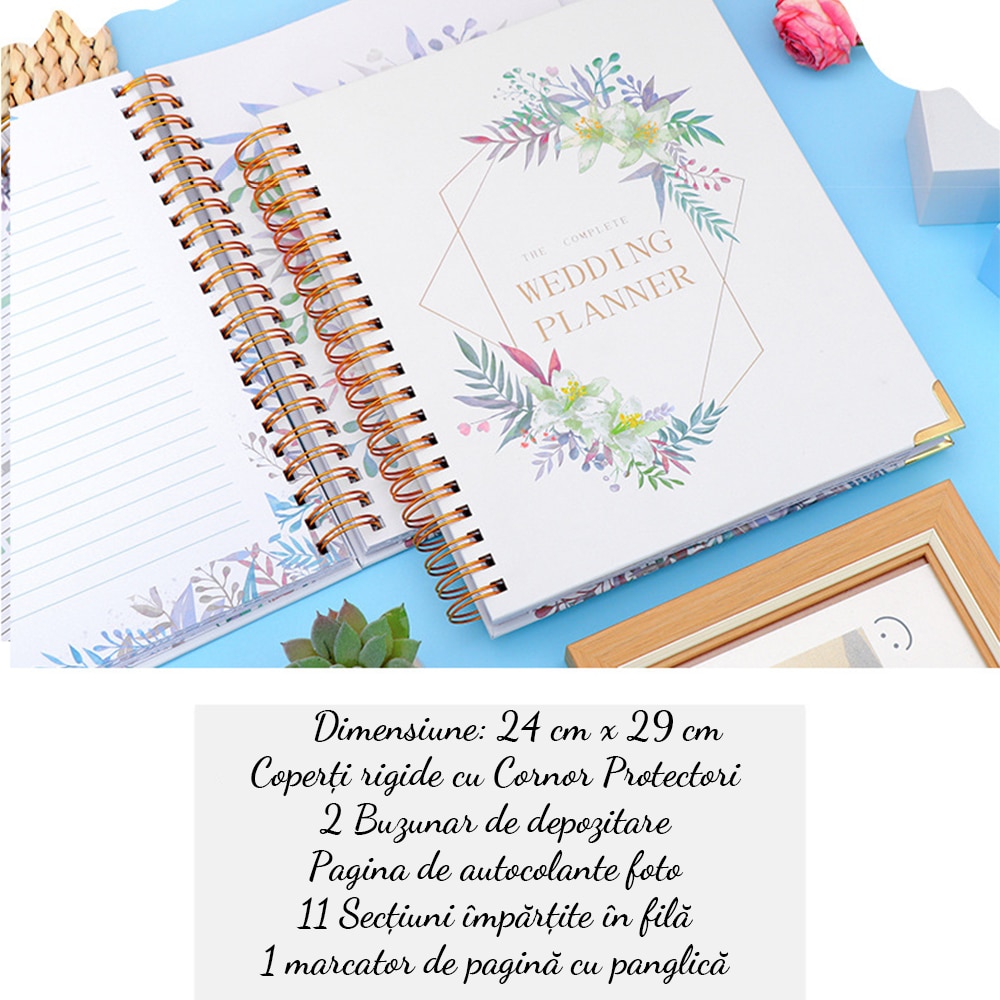 THE COMPLETE
WEDDING
PLANNER
Dimensiune: 24 cm x 29 cm
Coperți rigide cu Cornor Protectori
2 Buzunar de depozitare
Pagina de autocolante foto
11 Secțiuni împărțite în filă
1 marcator de pagină cu panglică